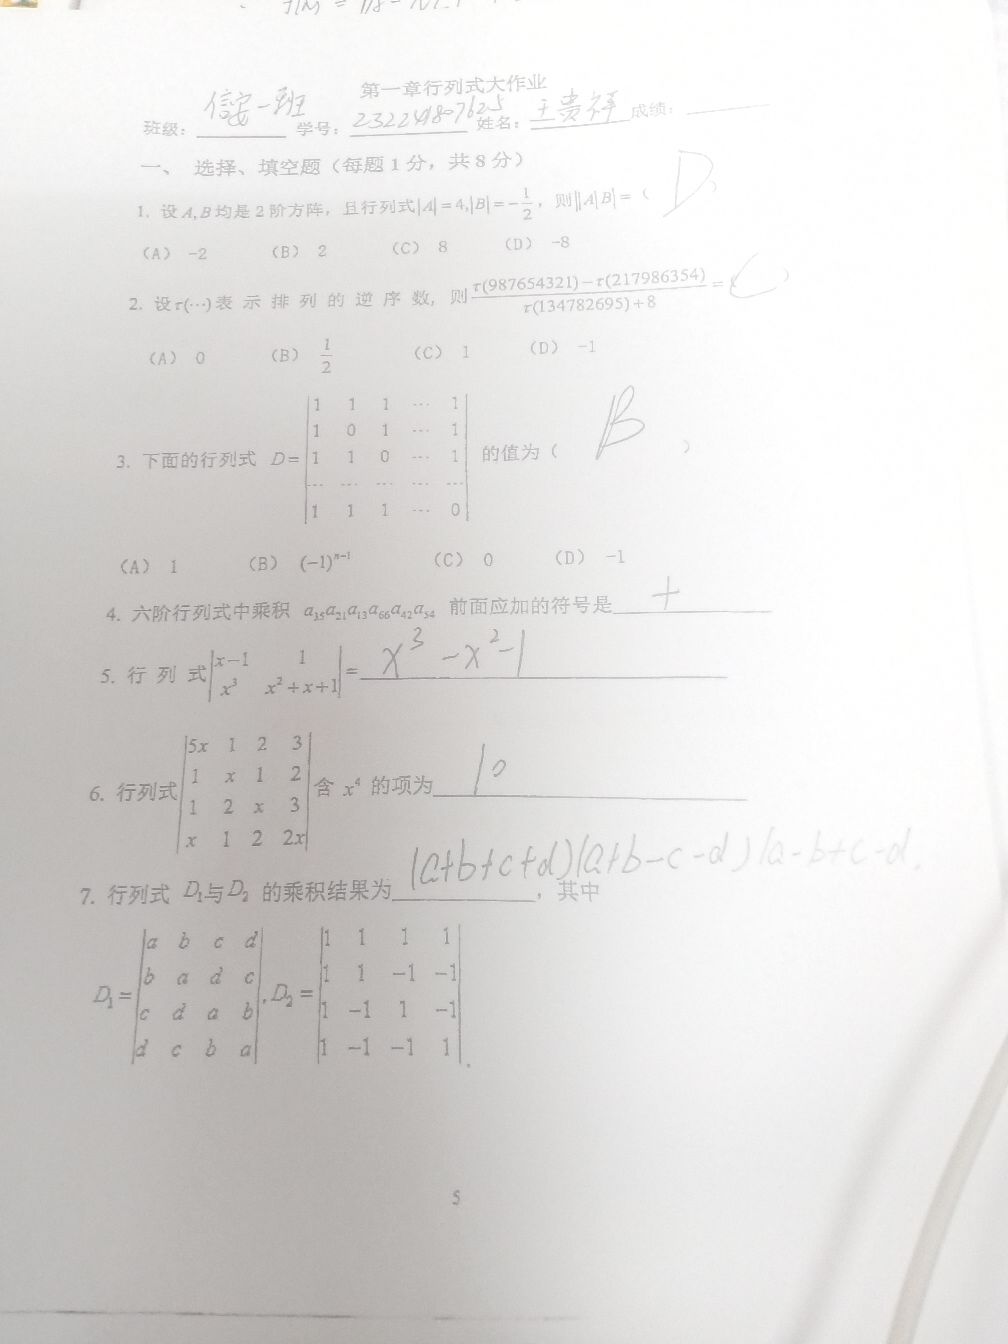 第一章行列式大作业
班级: 信安一班 学号: 232241807625 姓名: 王贵祥 成绩:
一、 选择、填空题（每题 1 分，共 8 分）
1. 设 A, B 均是 2 阶方阵，且行列式|A|=4,|B|=-1/2，则||A|B|=（ D ）
（A） -2 （B） 2 （C） 8 （D） -8
2. 设τ(⋯)表 示 排 列 的 逆 序 数, 则 (τ(987654321)-τ(217986354))/(τ(134782695)+8) =（ C ）
（A） 0 （B） 1/2 （C） 1 （D） -1
1 1 1 ⋯ 1
1 0 1 ⋯ 1
3. 下面的行列式 D= 1 1 0 ⋯ 1 的值为（ B ）
⋯ ⋯ ⋯ ⋯ ⋯
1 1 1 ⋯ 0
（A） 1 （B） (-1)^{n-1} （C） 0 （D） -1
4. 六阶行列式中乘积 a₃₅a₂₁a₁₃a₆₆a₄₂a₅₄ 前面应加的符号是 +
5. 行 列 式 |x-1 1
x³ x²+x+1| = x³-x²-1
5x 1 2 3
1 x 1 2
6. 行列式 含 x⁴ 的项为 10
1 2 x 3
x 1 2 2x
7. 行列式 D₁与D₂ 的乘积结果为 (a+b+c+d)(a+b-c-d)(a-b+c-d ，其中
a b c d
b a d c
c d a b
d c b a
D₁= , D₂=
1 1 1 1
1 1 -1 -1
1 -1 1 -1
1 -1 -1 1 .
5